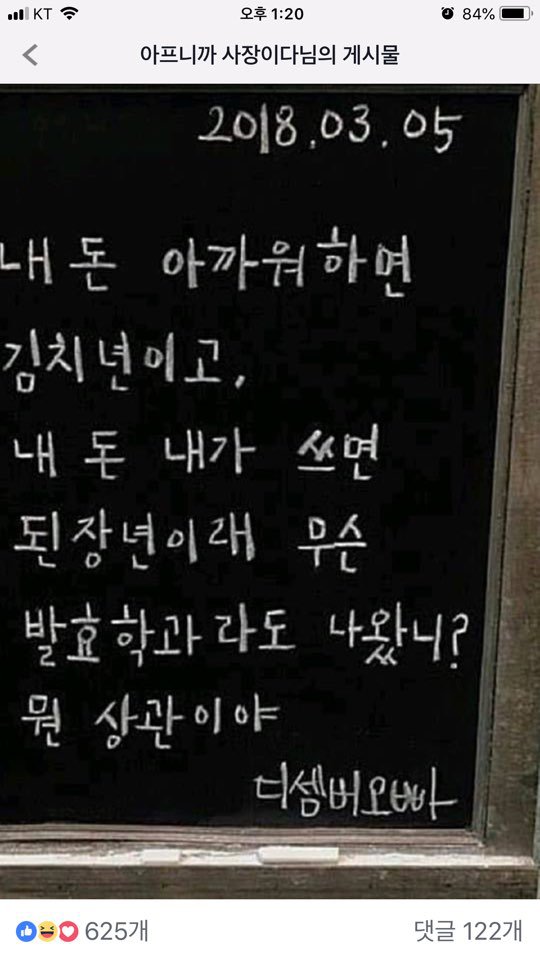 KT 오후 1:20 84%
아프니까 사장이다님의 게시물
2018.03.05
내 돈 아까워하면
김치년이고,
내 돈 내가 쓰면
된장년이래 무슨
발효학과라도 나왔니?
뭔 상관이야
디셈버오빠
625개 댓글 122개